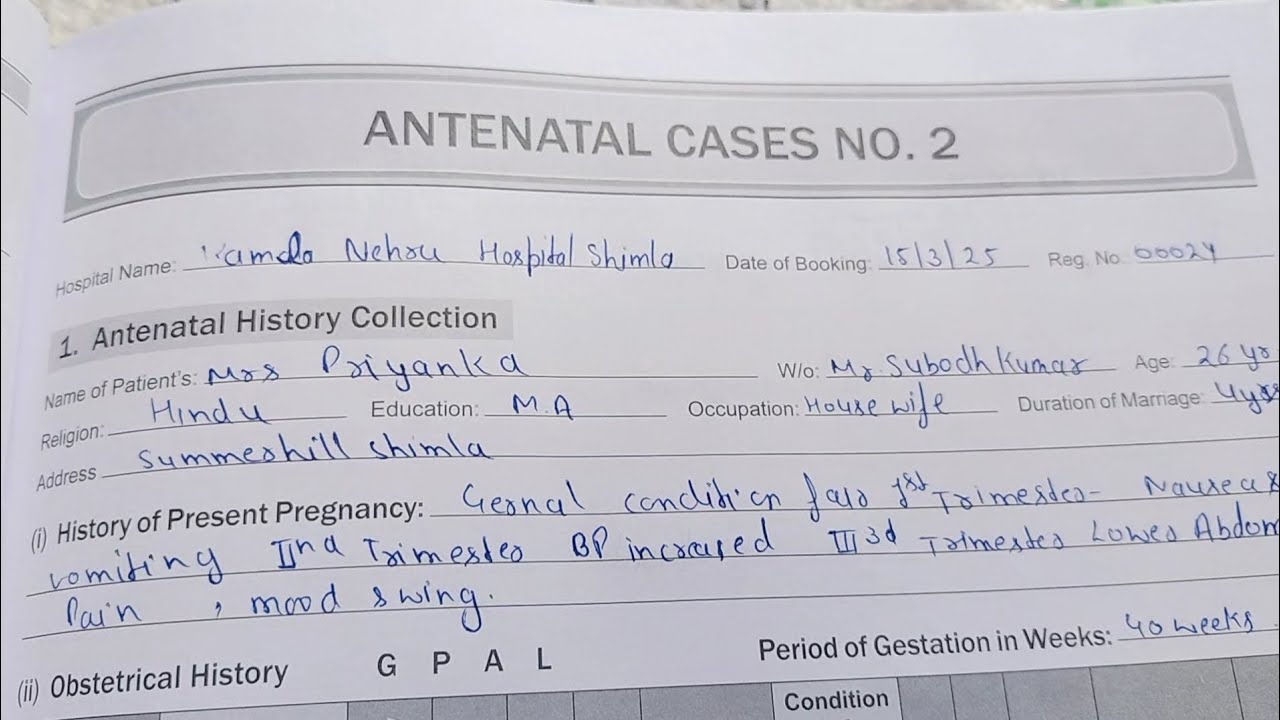 ANTENATAL CASES NO. 2
Hospital Name: Kamla Nehru Hospital Shimla Date of Booking: 15/3/25 Reg. No. 00024
1. Antenatal History Collection
Name of Patient's: Mrs Priyanka W/o: Mr. Subodh Kumar Age: 26 yr
Religion: Hindu Education: M.A Occupation: House wife Duration of Marriage: 4yrs
Address Summerhill Shimla
(i) History of Present Pregnancy: Gernal condition fair 1st Trimester- Nausea &
vomiting IInd Trimester BP incrased III3d Trimester Lower Abdom
Pain , mood swing.
(ii) Obstetrical History G P A L Period of Gestation in Weeks: 40 weeks
Condition